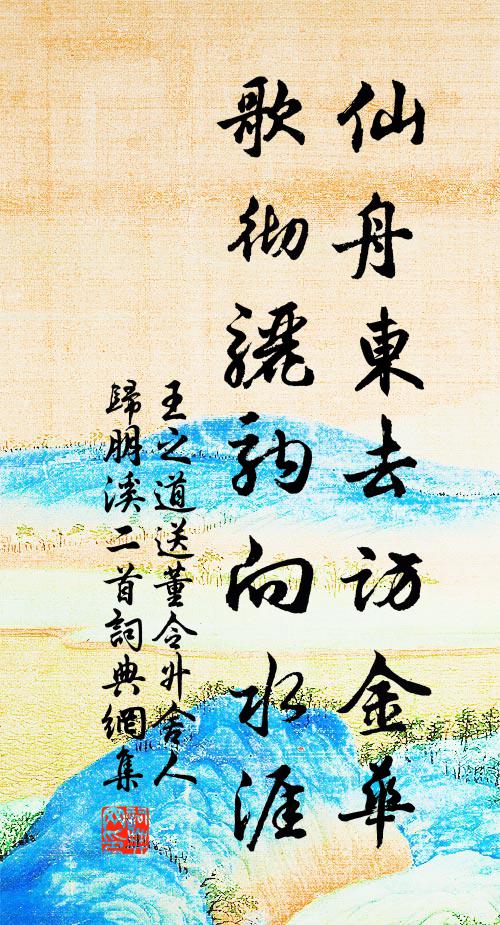 仙舟東去訪金華
歌彻驪駒向水涯
王之道送董令升舍人
歸朋溪二首詞典網集